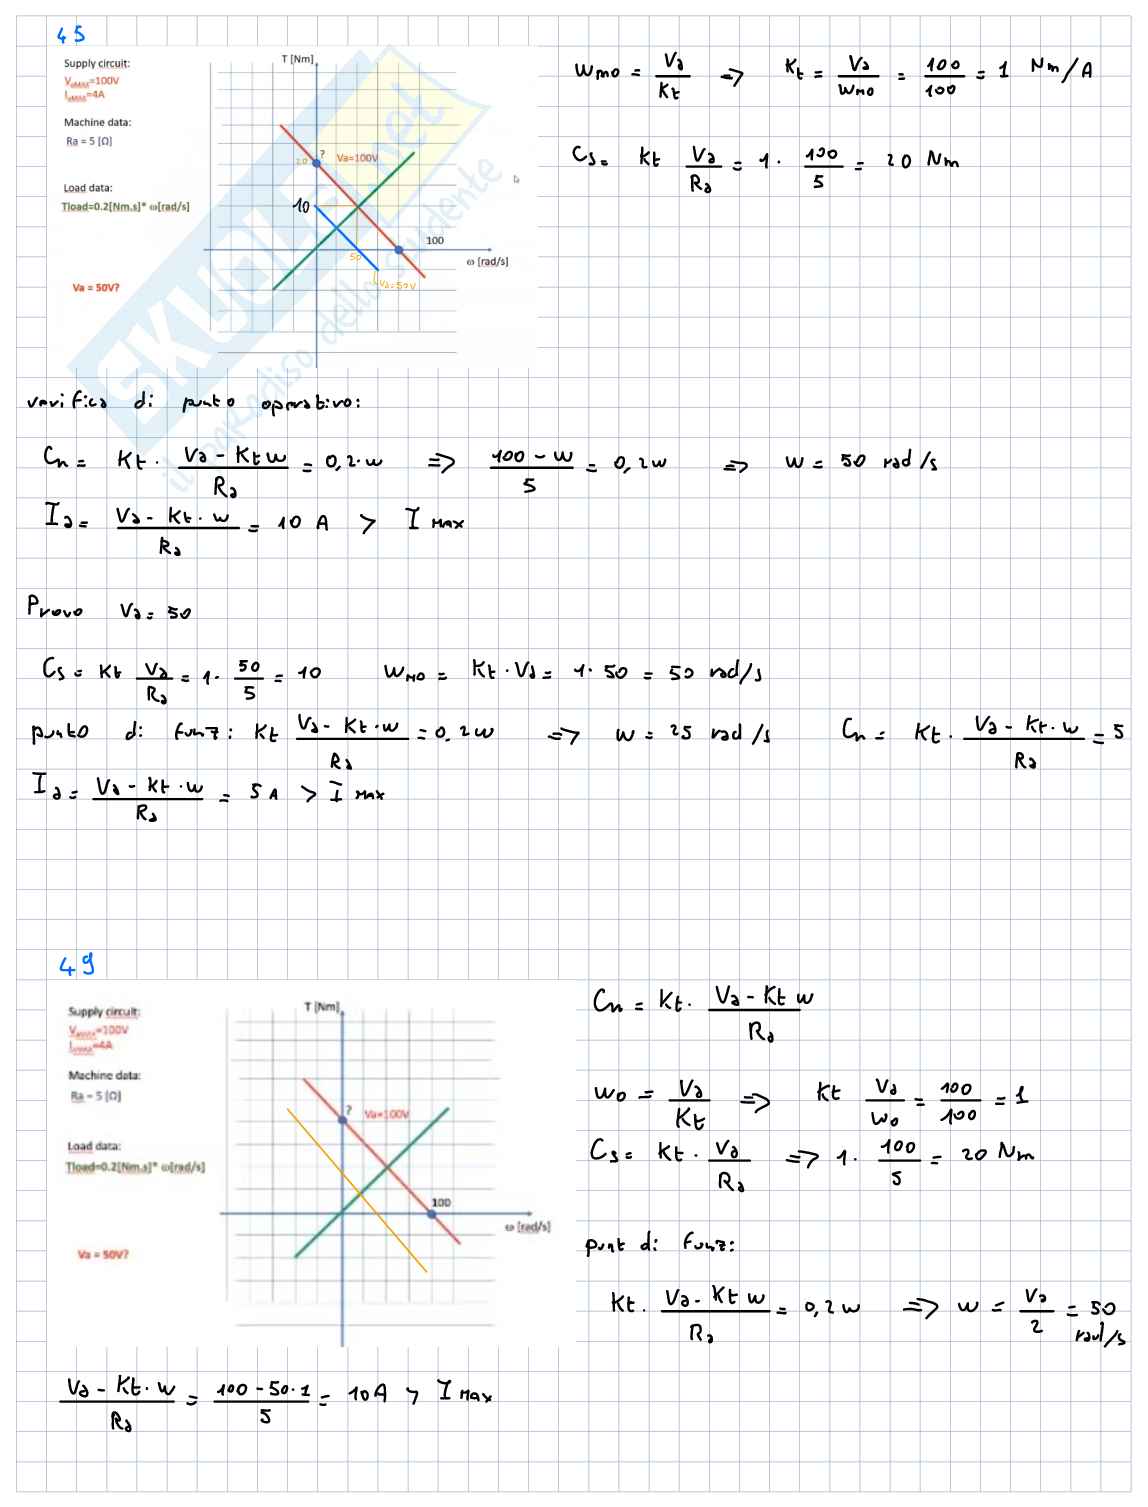 45
Supply circuit:
VaMAX=100V
IaMAX=4A
Machine data:
Ra = 5 [Ω]
Load data:
Tload=0.2[Nm.s]* ω[rad/s]
Va = 50V?
T [Nm]
?
20
Va=100V
10
100
50
ω [rad/s]
Va=50V
SKUOLA.net
il paradiso dello studente
Wmo = Va/Kt => Kt = Va/Wmo = 100/100 = 1 Nm/A
Cs = Kt Va/Ra = 1 · 100/5 = 20 Nm
verifica di punto operativo:
Cn = Kt · (Va - Kt w)/Ra = 0,2·w => (100 - w)/5 = 0,2w => w = 50 rad/s
Ia = (Va - Kt · w)/Ra = 10 A > I MAX
Provo Va = 50
Cs = Kt Va/Ra = 1 · 50/5 = 10 Wmo = Kt · Va = 1 · 50 = 50 rad/s
punto di funz: Kt (Va - Kt · w)/Ra = 0,2w => w = 25 rad/s Cn = Kt · (Va - Kt · w)/Ra = 5
Ia = (Va - Kt · w)/Ra = 5 A > I MAX
49
Supply circuit:
VaMAX=100V
IaMAX=4A
Machine data:
Ra = 5 [Ω]
Load data:
Tload=0.2[Nm.s]* ω[rad/s]
Va = 50V?
T [Nm]
?
Va=100V
100
ω [rad/s]
Cn = Kt · (Va - Kt w)/Ra
wo = Va/Kt => Kt Va/wo = 100/100 = 1
Cs = Kt · Va/Ra => 1 · 100/5 = 20 Nm
punt di funz:
Kt · (Va - Kt w)/Ra = 0,2w => w = Va/2 = 50 rad/s
(Va - Kt · w)/Ra = (100 - 50·1)/5 = 10A > I MAX